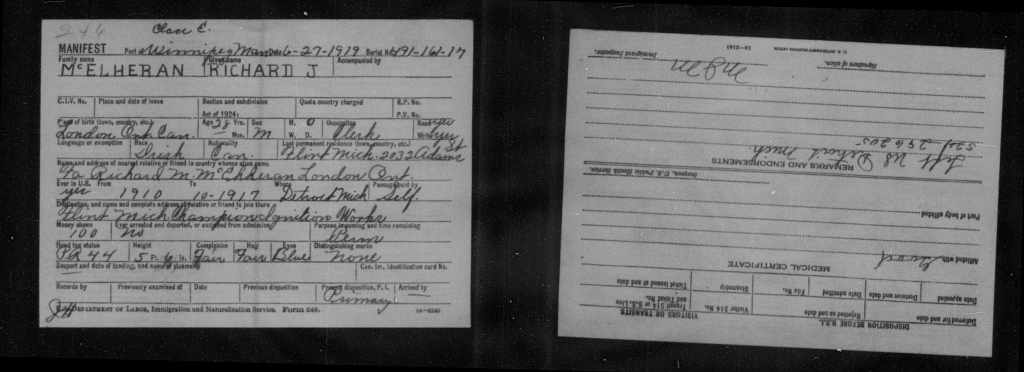 246 Class E.
MANIFEST Port Winnipeg Man Date 6-27-1919 Serial No. 491-161-17
Family name Given name Accompanied by
McELHERAN RICHARD J
C.I.V. No. Place and date of issue Section and subdivision Quota country charged R.P. No.
Act of 1924: P.V. No.
Place of birth (town, country, etc.) Age 28 Yrs. Sex M. O Occupation Read yes
London Ont Can. Mos. M W. D. Clerk Write yes
Language or exemption Race Nationality Last permanent residence (town, country, etc.)
Irish Can. Flint Mich. 2032 Adams St
Name and address of nearest relative or friend in country whence alien came
Fa Richard M. McElheran London Ont.
Ever in U.S. From To Where Passage paid by
yes 1910 10-1917 Detroit Mich Self.
Destination, and name and complete address of relative or friend to join there
Flint Mich Champion Ignition Works
Money shown Ever arrested and deported, or excluded from admission Purpose in coming and time remaining
100 No Perm
Head tax status Height Complexion Hair Eyes Distinguishing marks
PR 44 5 Ft. 6 In. Fair Fair Blue None
Seaport and date of landing, and name of steamship Can. Int. Identification card No.
Records by Previously examined at Date Previous disposition Present disposition, P. I. Arrived by
Primary
U. S. DEPARTMENT OF LABOR, Immigration and Naturalization Service. Form 548.
DISPOSITION BEFORE B.S.I.
Deferred for and date Rejected as and date
Date appealed Decision and date Date admitted File No.
VISITORS OR TRANSITS
Visitor $14 No. Transit $14 or R.R. Line and Ticket No.
Biometry Ticket issued and date
MEDICAL CERTIFICATE
Afflicted with
Part of body afflicted
Surgeon, U. S. Public Health Service.
REMARKS AND ENDORSEMENTS
Left US Detroit Mich
521 296205
Signature of alien. Immigrant Inspector.